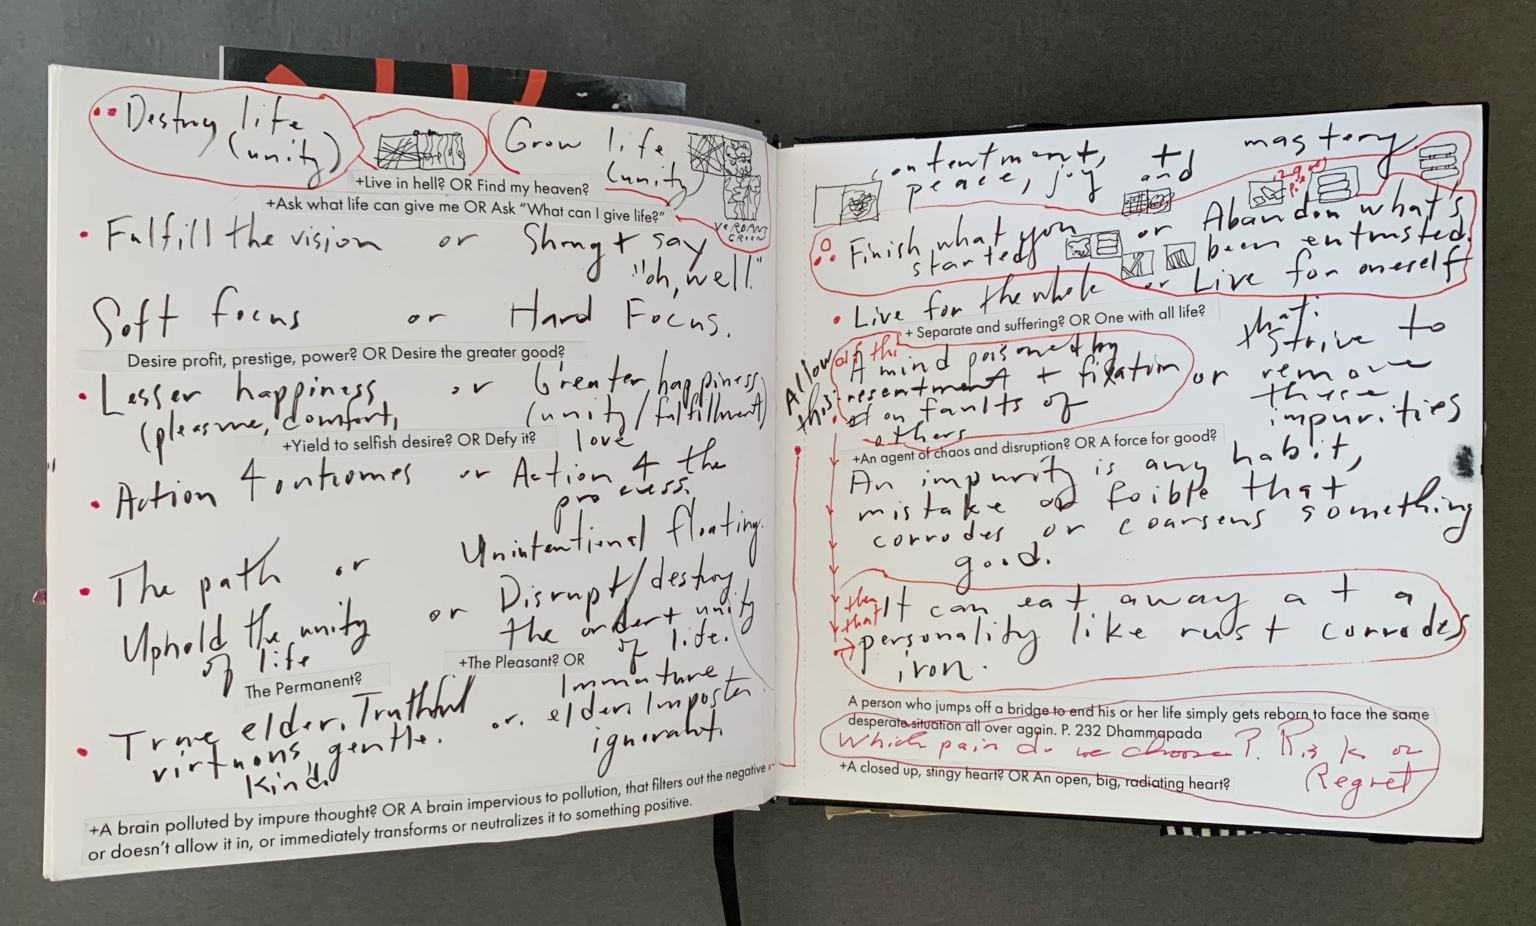 Destroy life
(unity)
Grow life
(unity)
+Live in hell? OR Find my heaven?
+Ask what life can give me OR Ask “What can I give life?”
VERDANT
GREEN
Fulfill the vision or Shrug + say
"oh, well."
Soft focus or Hard Focus.
Desire profit, prestige, power? OR Desire the greater good?
Lesser happiness or Greater happiness
(pleasure, comfort, (unity/fulfillment)
love
+Yield to selfish desire? OR Defy it?
Action 4 outcomes or Action 4 the
process.
The path or Unintentional floating.
Uphold the unity or Disrupt/destroy
of life the order + unity
of life.
+The Pleasant? OR
The Permanent?
True elder. Truthful or Immature
virtuous gentle. elder. Imposter
kind. ignorant.
+A brain polluted by impure thought? OR A brain impervious to pollution, that filters out the negative
or doesn’t allow it in, or immediately transforms or neutralizes it to something positive.
contentment, + mastery
peace, joy and
Finish what you or Abandon what's
started been entrusted.
Live for the whole or Live for oneself
+ Separate and suffering? OR One with all life?
Allow
this
A mind poisoned by or Strive to
resentment + fixation remove
on faults of these
others impurities
+An agent of chaos and disruption? OR A force for good?
An impurity is any habit,
mistake or foible that
corrodes or coarsens something
good.
then
that
It can eat away at a
personality like rust corrodes
iron.
A person who jumps off a bridge to end his or her life simply gets reborn to face the same
desperate situation all over again. P. 232 Dhammapada
Which pain do we choose? Risk or
Regret
+A closed up, stingy heart? OR An open, big, radiating heart?